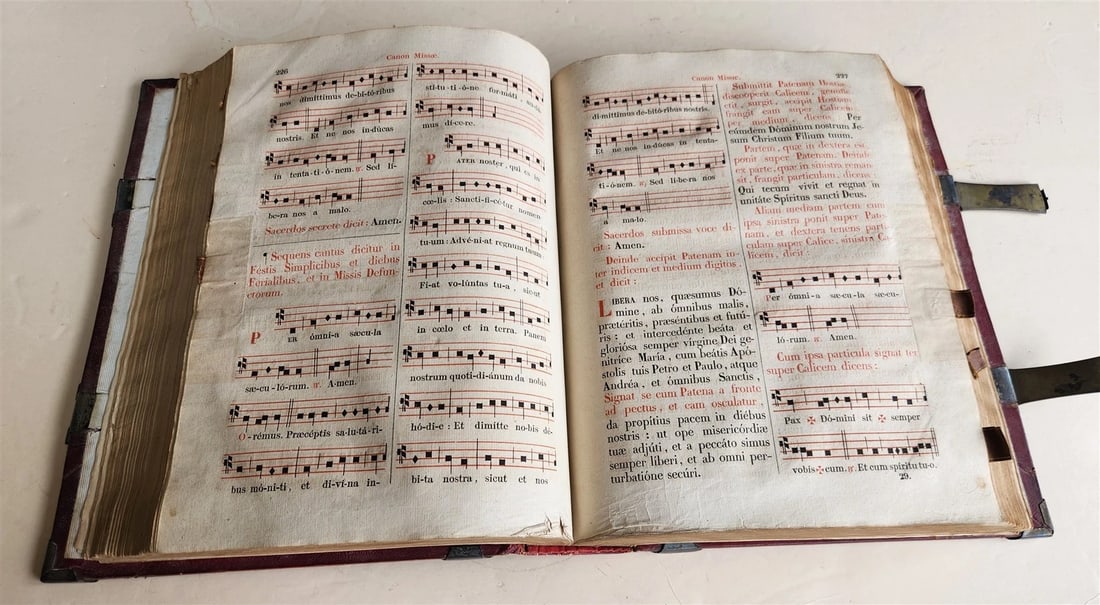 226
Canon Missæ.
nos dimittimus de-bi-tó-ribus
nostris. Et ne nos in-dúcas
in tenta-ti-ó-nem. ℟. Sed lí-
be-ra nos a malo.
Sacerdos secrete dicit: Amen.
¶ Sequens cantus dicitur in
Festis Simplicibus et diebus
Ferialibus, et in Missis Defun-
ctorum.
PER ómni-a sæcula
sæ-cu-lórum. ℟. A-men.
O-rémus. Præcéptis sa-lu-tá-ri-
bus mó-ni-ti, et di-ví-na in-
sti-tu-ti-ó-ne for-máti, au-dé-
mus dí-ce-re.
PATER noster, qui es in
cœ-lis: Sancti-fi-cé-tur nomen
tu-um: Advé-ni-at regnum tuum:
Fi-at vo-lúntas tu-a, sic-ut
in cœlo et in terra. Panem
nostrum quoti-di-ánum da nobis
hó-di-e: Et dimítte no-bis dé-
bi-ta nostra, sicut et nos
Canon Missæ.
227
di-míttimus de-bi-tó-ribus nostris.
Et ne nos in-dúcas in tenta-
ti-ó-nem. ℟. Sed lí-be-ra nos
a ma-lo.
Sacerdos submissa voce di-
cit: Amen.
Deinde accipit Patenam in-
ter indicem et medium digitos,
et dicit:
LIBERA nos, quæsumus Dó-
mine, ab ómnibus malis,
prætéritis, præséntibus et futú-
ris: et intercedénte beáta et
gloriósa semper vírgine Dei ge-
nitríce María, cum beátis Apó-
stolis tuis Petro et Paulo, atque
Andréa, et ómnibus Sanctis,
Signat se cum Patena a fronte
ad pectus, et eam osculatur.
da propítius pacem in diébus
nostris: ut ope misericórdiæ
tuæ adjúti, et a peccáto simus
semper líberi, et ab omni per-
turbatióne secúri.
Submittit Patenam Hostiæ,
discooperit Calicem, genufle-
ctit, surgit, accipit Hostiam,
frangit eam super Calicem
per medium, dicens: Per
eúmdem Dóminum nostrum Je-
sum Christum Fílium tuum.
Partem, quæ in dextera est,
ponit super Patenam. Deinde
ex parte, quæ in sinistra reman-
sit, frangit particulam, dicens:
Qui tecum vivit et regnat in
unitáte Spíritus sancti Deus.
Aliam mediam partem cum
ipsa sinistra ponit super Pate-
nam, et dextera tenens parti-
culam super Calicem, sinistra Ca-
licem, dicit:
Per ómni-a sæ-cu-la sæ-cu-
ló-rum. ℟. Amen.
Cum ipsa particula signat ter
super Calicem dicens:
Pax ✠ Dó-mini sit ✠ semper
vobís-✠-cum. ℟. Et cum spíritu tu-o.
29.